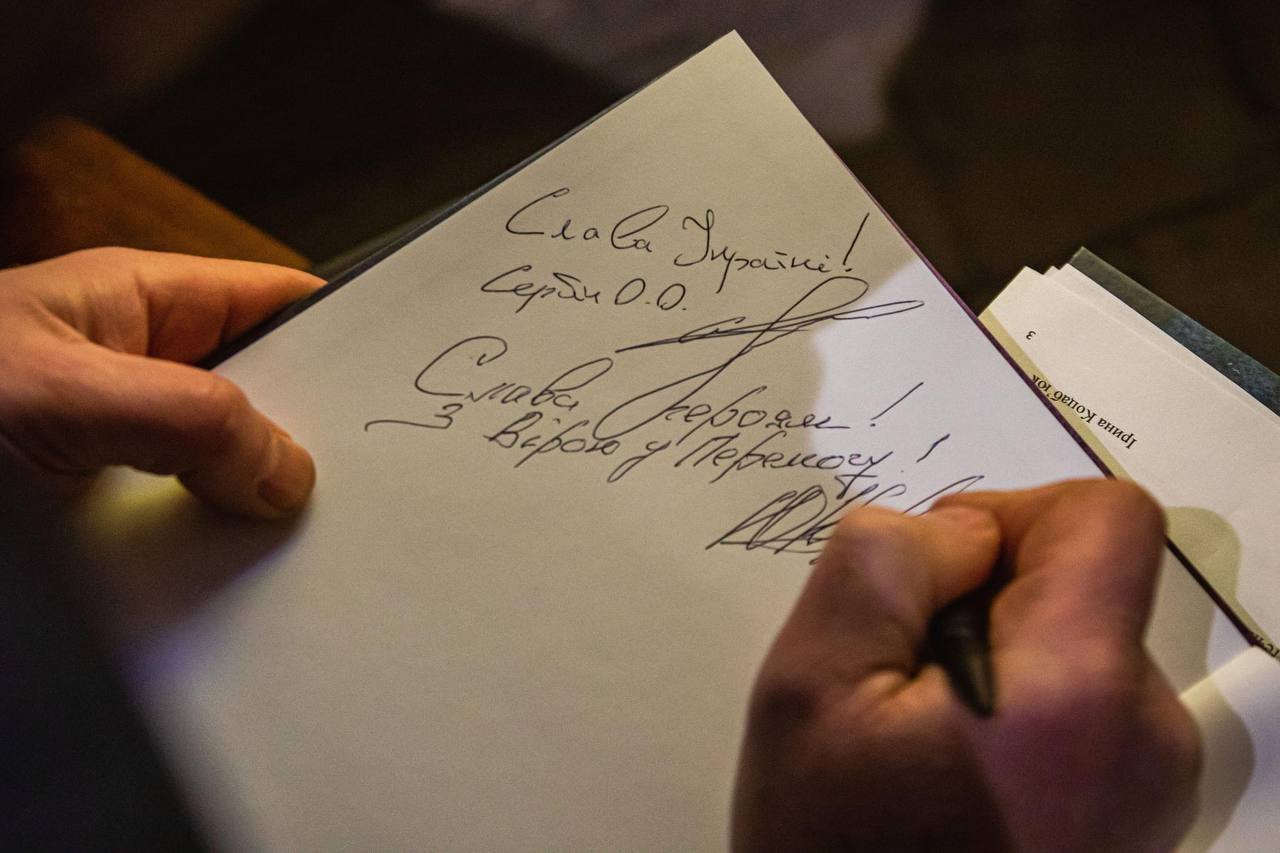 Слава Україні!
Сербін О.О.
Слава героям!
З Вірою у Перемогу!
3
Ірина Копаб'юк